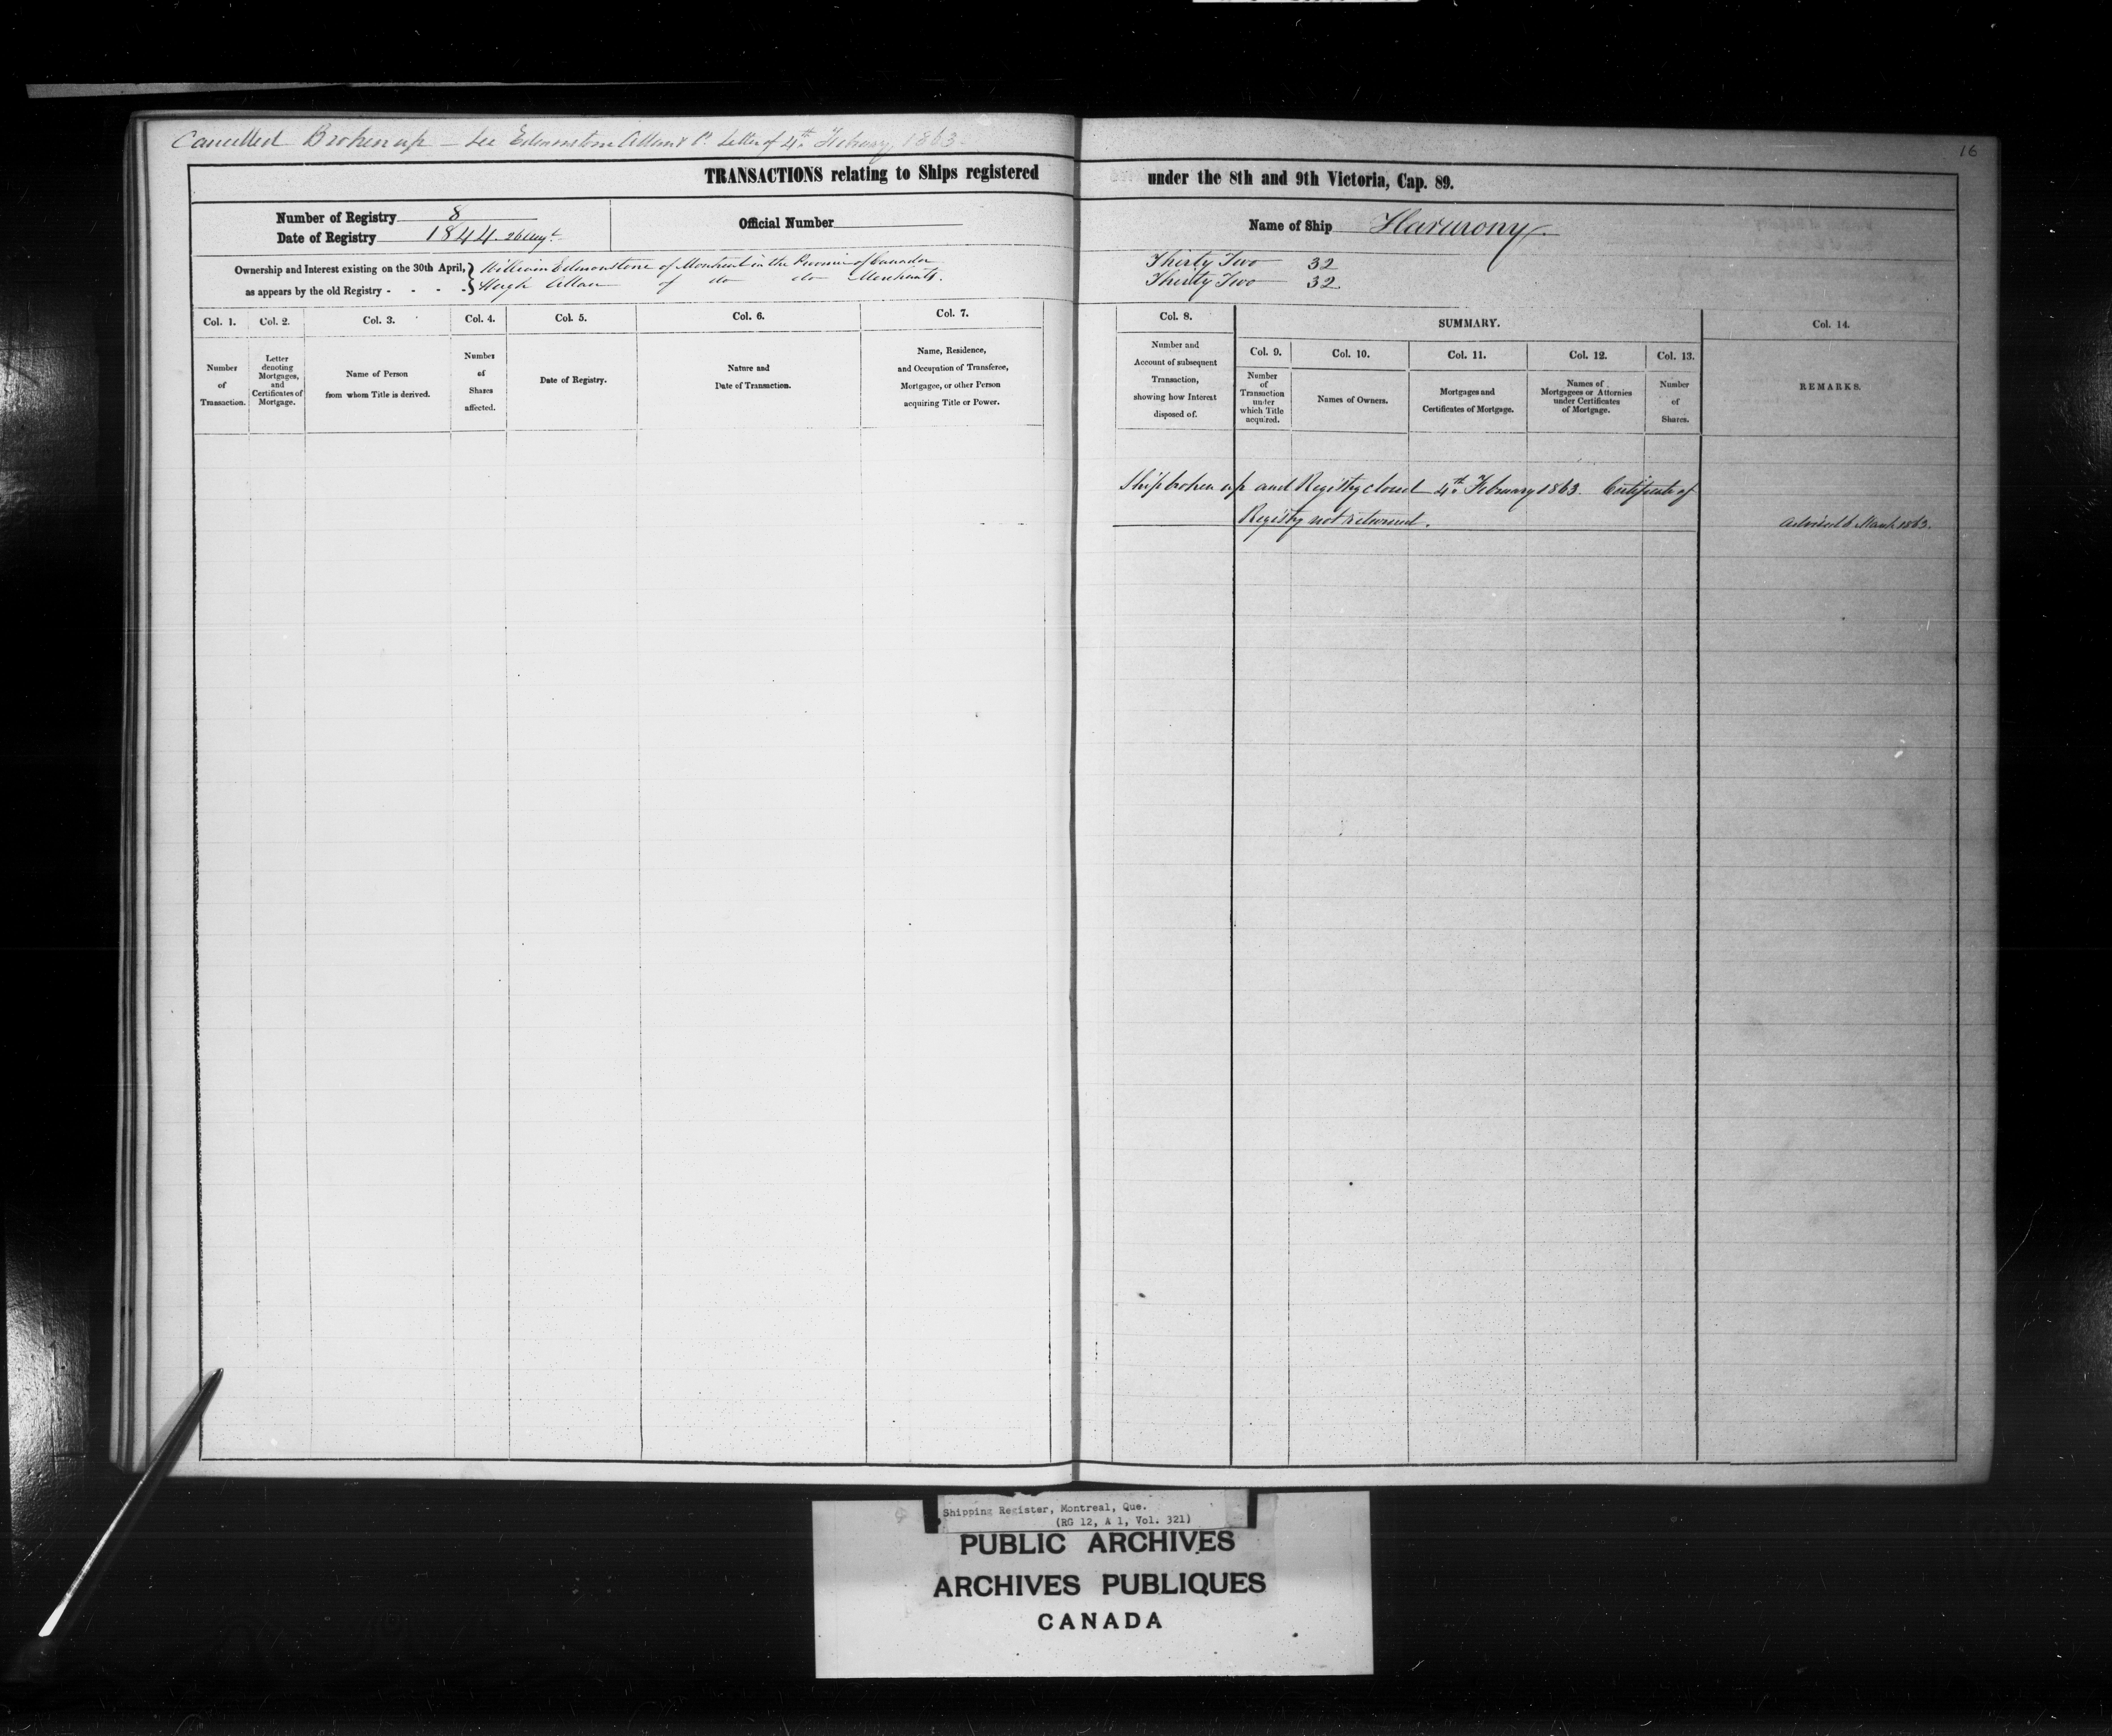 Cancelled Broken up — See Edmonstone Allan & Co. Letter of 4th February, 1863.
16
TRANSACTIONS relating to Ships registered under the 8th and 9th Victoria, Cap. 89.
Number of Registry 8
Date of Registry 1844. 26 Augt.
Official Number
Name of Ship Harmony
Ownership and Interest existing on the 30th April, as appears by the old Registry - - - -
William Edmonstone of Montreal in the Province of Canada Thirty Two 32
Hugh Allan of do do Merchants. Thirty Two 32
Col. 1.
Number
of
Transaction.
Col. 2.
Letter
denoting
Mortgages,
and
Certificates of
Mortgage.
Col. 3.
Name of Person
from whom Title is derived.
Col. 4.
Number
of
Shares
affected.
Col. 5.
Date of Registry.
Col. 6.
Nature and
Date of Transaction.
Col. 7.
Name, Residence,
and Occupation of Transferee,
Mortgagee, or other Person
acquiring Title or Power.
Col. 8.
Number and
Account of subsequent
Transaction,
showing how Interest
disposed of.
SUMMARY.
Col. 9.
Number
of
Transaction
under
which Title
acquired.
Col. 10.
Names of Owners.
Col. 11.
Mortgages and
Certificates of Mortgage.
Col. 12.
Names of
Mortgagees or Attornies
under Certificates
of Mortgage.
Col. 13.
Number
of
Shares.
Col. 14.
REMARKS.
Ship broken up and Registry closed 4th February 1863. Certificate of
Registry not returned.
Advised 6 March 1863.
Shipping Register, Montreal, Que.
(RG 12, A 1, Vol. 321)
PUBLIC ARCHIVES
ARCHIVES PUBLIQUES
CANADA